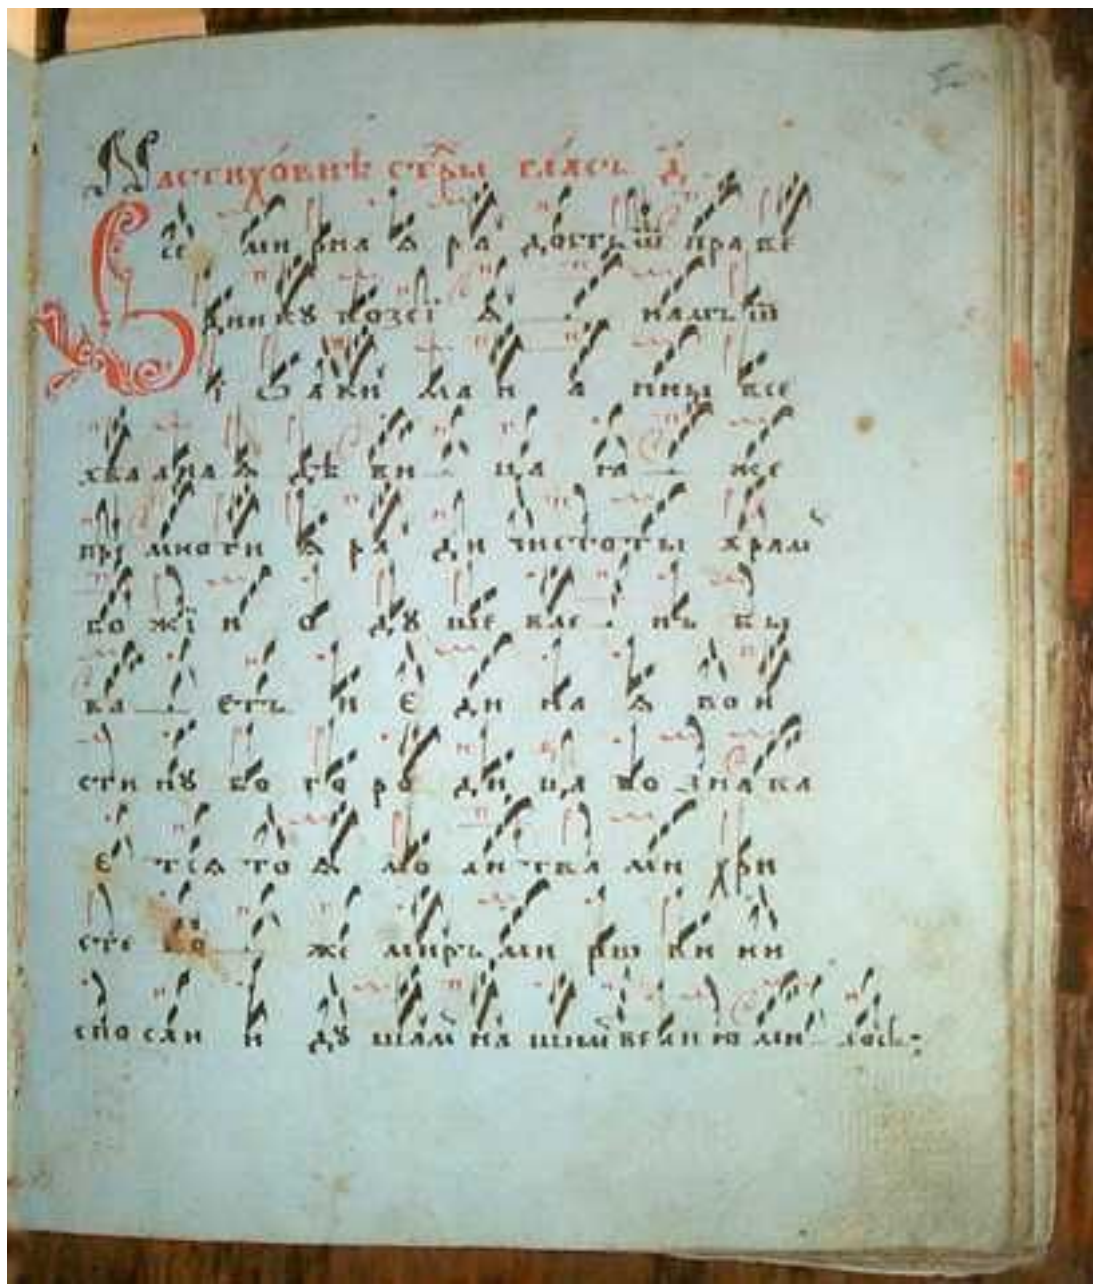 На стихо́внѣ стр҃ы гла́съ д҃
Все ми рна ѧ ра дость ѿ пра ве
дни ку возсї ѧ намъ ѿ
і ѡ а ки ма и а нны все
хва лна ѧ дѣ ви ца ꙗ же
пре многи ѧ ра ди чистоты храм
бо жїи о ду ше вле нъ бы
ва етъ и є ди на ѧ вои
стинꙋ бо го ро ди ца по зна ва
є тсѧ тоѧ мо литва ми хри
сте бо же миръ ми рѡ ви ни
спо сли и дꙋ шам на шим велию ми лость